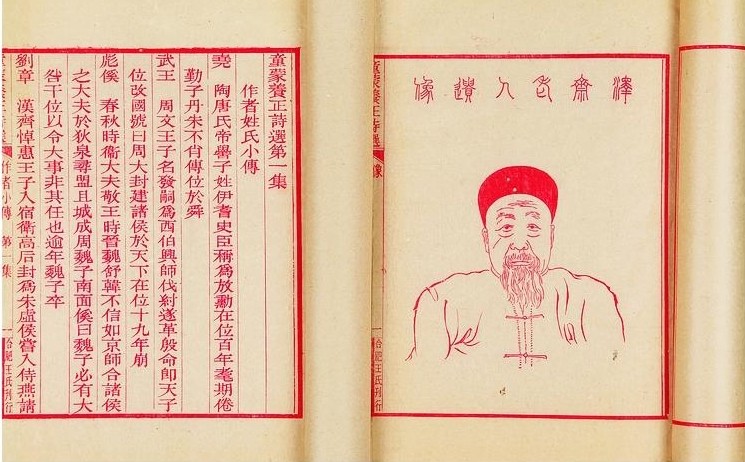 澤齋老人遺像
童蒙養正詩選 像 一 合肥王氏刊行
童蒙養正詩選第一集
作者姓氏小傳
堯 陶唐氏帝嚳子姓伊耆史臣稱爲放勳在位百年耄期倦
勤子丹朱不肖傳位於舜
武王 周文王子名發嗣爲西伯興師伐紂遂革殷命即天子
位改國號曰周大封建諸侯於天下在位十九年崩
彪傒 春秋時衞大夫敬王時晉魏舒韓不信如京師合諸侯
之大夫於狄泉尋盟且城成周魏子南面傒曰魏子必有大
咎干位以令大事非其任也逾年魏子卒
劉章 漢齊悼惠王子入宿衞高后封爲朱虛侯嘗入侍燕請
童蒙養正詩選 作者小傳 第一集 一 合肥王氏刊行